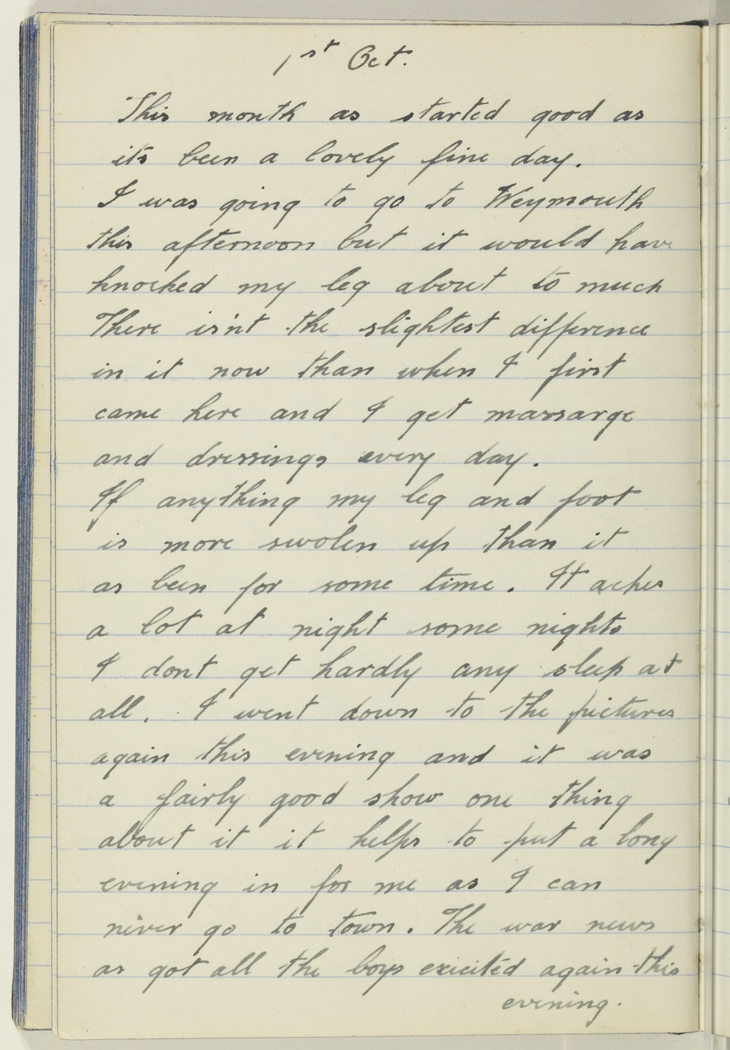 1st Oct.
This month as started good as
its been a lovely fine day.
I was going to go to Weymouth
this afternoon but it would have
knocked my leg about to much
There isn't the slightest difference
in it now than when I first
came here and I get massarge
and dressings every day.
If anything my leg and foot
is more swolen up than it
as been for some time. It aches
a lot at night some nights
I dont get hardly any sleep at
all. I went down to the pictures
again this evening and it was
a fairly good show one thing
about it it helps to put a long
evening in for me as I can
never go to town. The war news
as got all the boys exicited again this
evening.